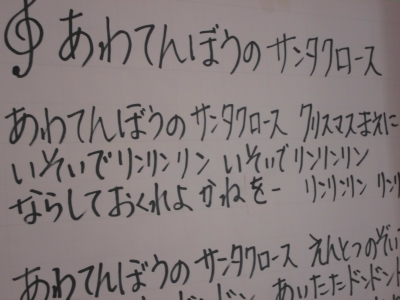 あわてんぼうのサンタクロース
あわてんぼうのサンタクロース クリスマスまえに
いそいでリンリンリン いそいでリンリンリン
ならしておくれよ かねをー リンリンリン リン
あわてんぼうのサンタクロース えんとつのぞい
ドンドンドン あいたたドンドン